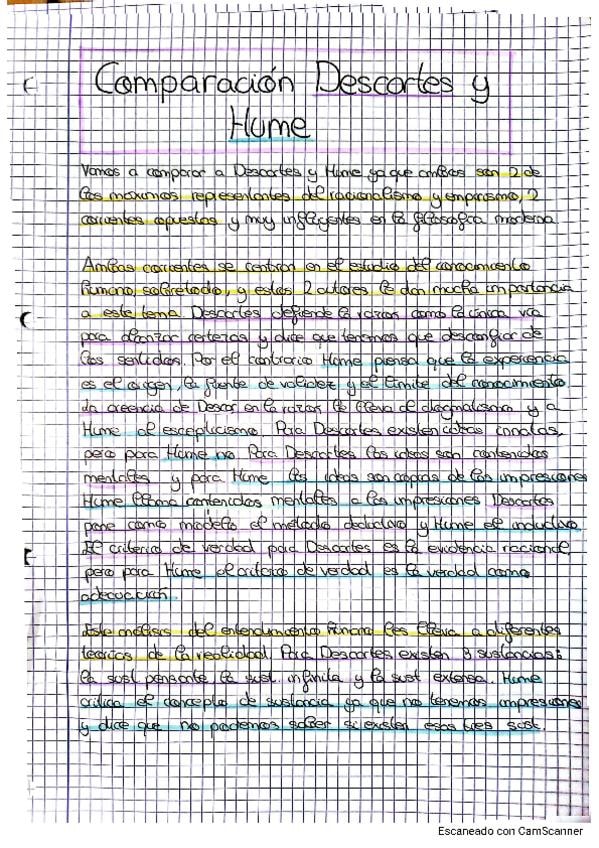 Comparación Descartes y
Hume
Vamos a comparar a Descartes y Hume ya que ambos son 2 de
los máximos representantes del racionalismo y empirismo, 2
corrientes opuestas y muy influyentes en la filosofía moderna
Ambas corrientes se centran en el estudio del conocimiento
humano, sobretodo, y estos 2 autores le dan mucha importancia
a este tema. Descartes defiende la razón como la única vía
para alcanzar certezas y dice que tenemos que desconfiar de
los sentidos. Por el contrario Hume piensa que la experiencia
es el origen, la fuente de validez y el límite del conocimiento
La creencia de Descar. en la razón le lleva al dogmatismo y a
Hume al escepticismo. Para Descartes existen ideas innatas,
pero para Hume no. Para Descartes las ideas son contenidos
mentales y para Hume las ideas son copias de las impresiones
Hume llama contenidos mentales a las impresiones Descartes
pone como modelo el método deductivo y Hume el inductivo
El criterio de verdad para Descartes es la evidencia racional,
pero para Hume el criterio de verdad es la verdad como
adecuación.
Este análisis del entendimiento humano les lleva a diferentes
teorías de la realidad. Para Descartes existen 3 sustancias:
la sust pensante, la sust. infinita y la sust extensa. Hume
critica el concepto de sustancia ya que no tenemos impresiones
y dice que no podemos saber si existen esas tres sust.
Escaneado con CamScanner